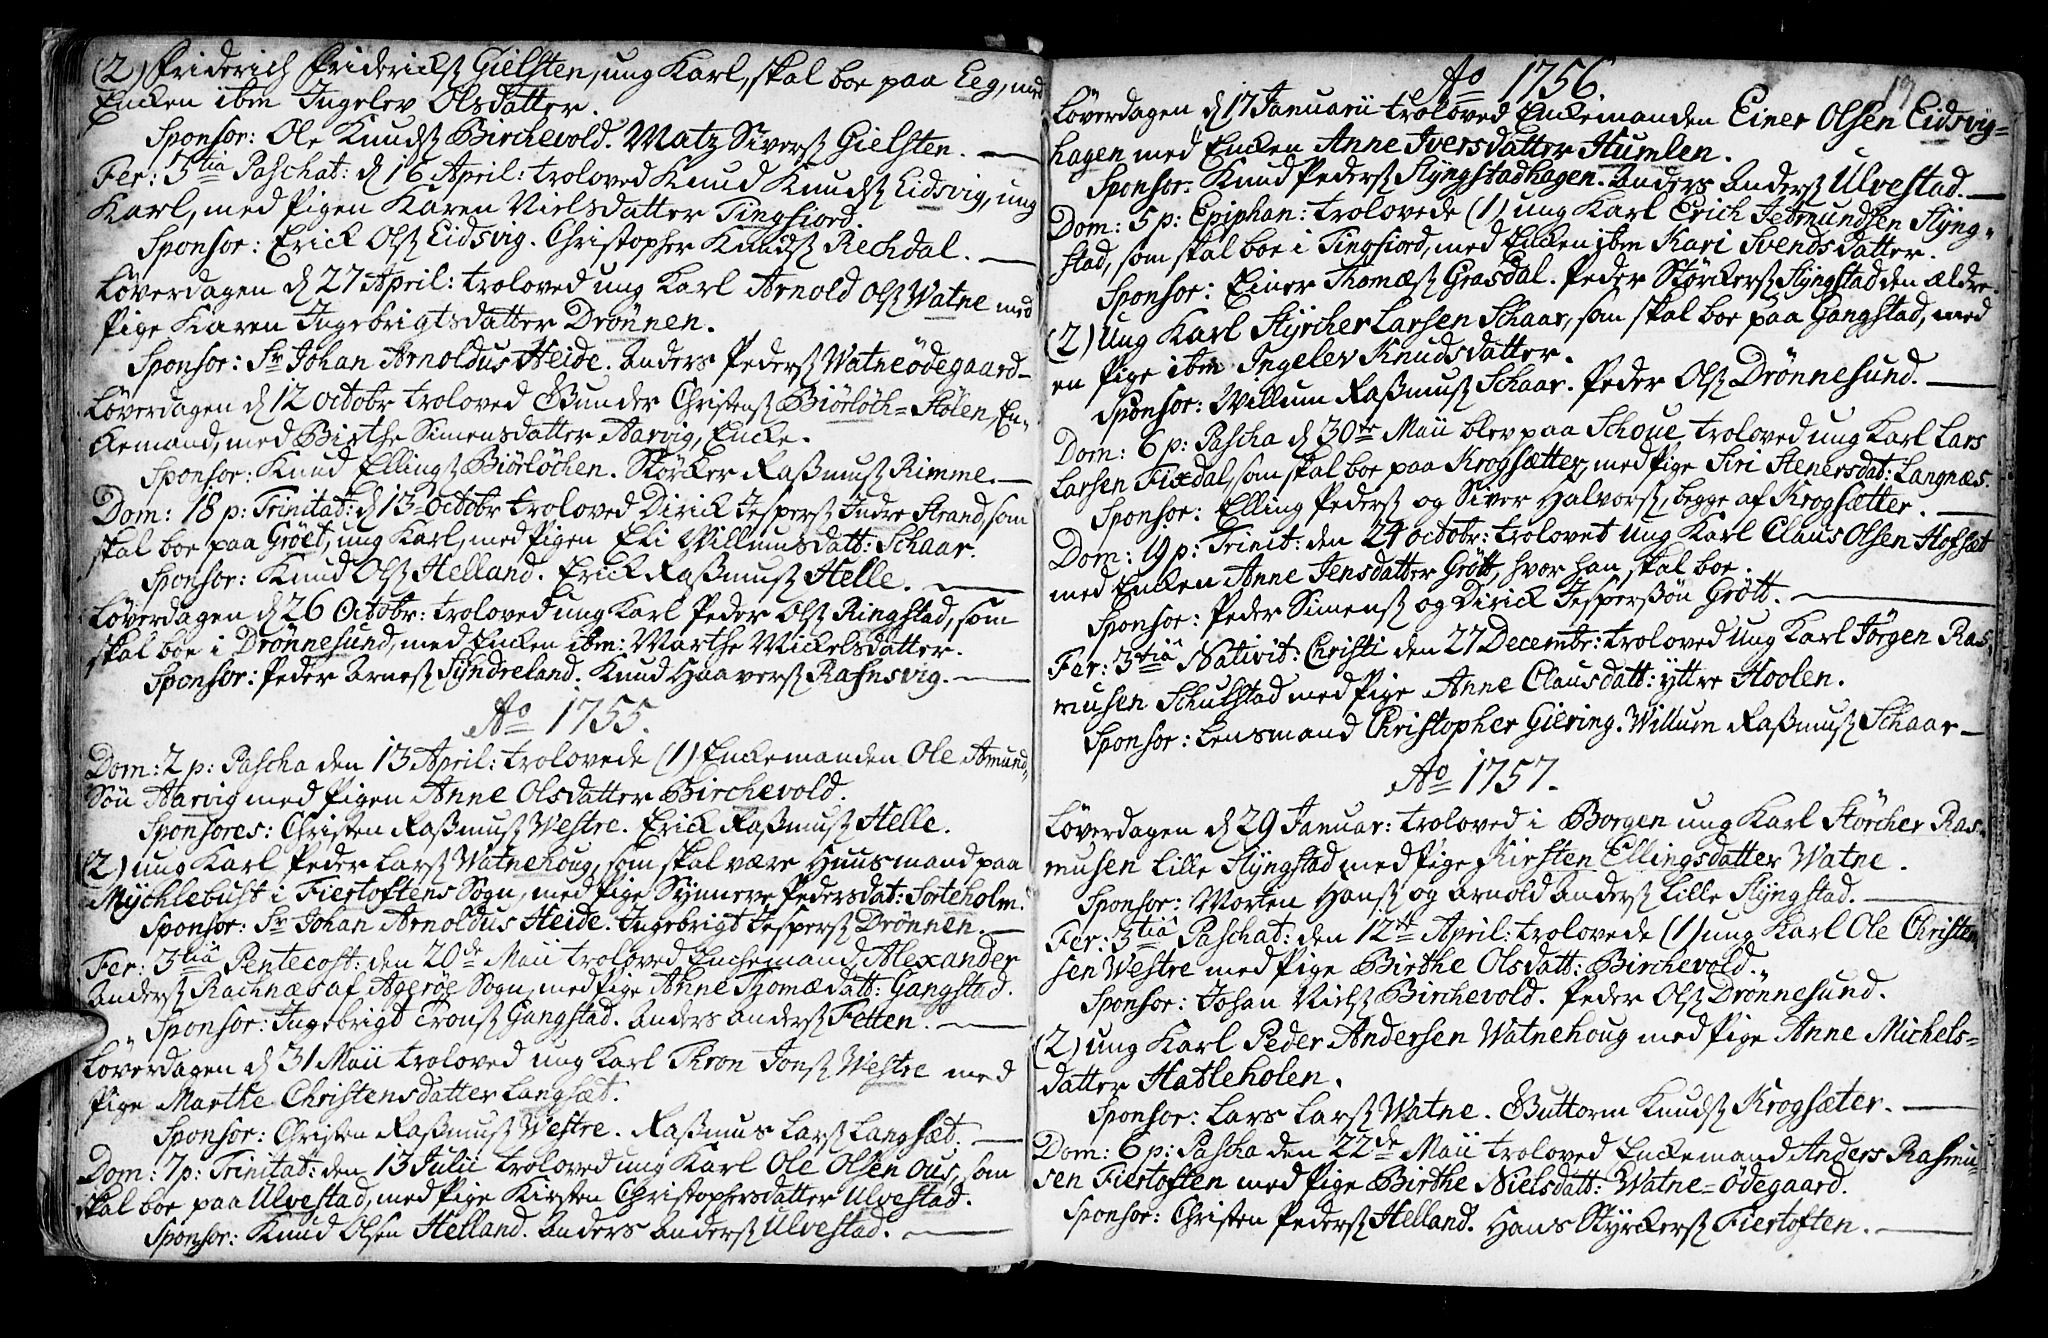 (2) Friderich Fridericks: Gielsten, ung Karl, skal boe paa Eeg, med
Encken ibm Ingelev Olsdatter.
Sponsor: Ole Knuds: Birchevold. Matz Sivers: Gielsten.
Fer: 3tiâ Paschat: d 16 April: troloved Knud Knuds: Eidsvig, ung
Karl, med Pigen Karen Nielsdatter Tingfiord.
Sponsor: Erick Ols: Eidsvig. Christopher Knuds: Rechdal.
Löverdagen d 27 April: troloved ung Karl Arnold Ols: Watne med
Pige Karen Ingebrigtsdatter Drönnen.
Sponsor: Sr Johan Arnoldus Heide. Anders Peders: Watneödegaard
Löverdagen d 12 octobr troloved Gunder Christens: Biörlöch=Stölen, En-
kemand, med Birthe Simensdatter Aarvig, Encke.
Sponsor: Knud Ellings: Biörlöchen. Störker Rasmus: Rimme.
Dom: 18 p: Trinitat: d 13 octobr troloved Dirick Jespers: Indre Strand, som
skal boe paa Gröet, ung Karl, med Pigen Eli Willumsdatt: Schaar.
Sponsor: Knud Ols: Helland. Erick Rasmus: Helle.
Löverdagen d 26 Octobr: troloved ung Karl Peder Ols: Ringstad, som
skal boe i Drönnesund, med Encken ibm: Marthe Mickelsdatter.
Sponsor: Peder Arnes: Syndreland. Knud Haavers: Rafnsvig.
Ao 1755.
Dom: 2 p: Pascha den 13 April: trolovede (1) Enckemanden Ole Amund-
Sön Aarvig med Pigen Anne Olsdatter Birchevold.
Sponsores: Christen Rasmus: Westre. Erick Rasmus: Helle.
(2) ung Karl Peder Lars: Watnehoug, som skal være Huusmand paa
Mychlebust i Fiertoftens Sogn, med Pige Synneve Pedersdat: Sorteholm.
Sponsor: Sr Johan Arnoldus Heide. Ingebrigt Jespers: Drönnen.
Fer: 3tiâ Pentecost: den 20de Maii troloved Enchemand, Alexander
Anders: Rachnæs af Ageröe Sogn, med Pige Anne Thomædatt: Gangstad.
Sponsor: Ingebrigd Trons: Gangstad. Anders Anders: Fetten.
Löverdagen d 31 Maii troloved ung Karl Thron Jons: Westre med
Pige Marthe Christensdatter Langsæt.
Sponsor: Christen Rasmus: Westre. Rasmus Lars: Langsæt.
Dom: 7 p: Trinitat: den 13 Julii troloved ung Karl Ole Olsen Ous, som
skal boe paa Ulvestad, med Pige Kirsten Christophersdatter Ulvestad.
Sponsor: Knud Olsen Helland. Anders Anders: Ulvestad.
Ao 1756.
Löverdagen d 17 Januarii troloved Enckemanden Einer Olsen Eidsvig=
hagen med Encken Anne Iversdatter Humlen.
Sponsor: Knud Peders: Slyngstadhagen. Anders Anders: Ulvestad.
Dom: 5 p: Epiphan: trolovede (1) ung Karl Erich Jetmundsen Slyng-
stad, som skal boe i Tingfiord, med Encken ibm Kari Svendsdatter.
Sponsor: Einer Thomæs: Grasdal. Peder Störkers: Slyngstad den ældre.
(2) Ung Karl Styrcher Larsen Schaar, som skal boe paa Gangstad, med
en Pige ibm Ingelev Knudsdatter.
Sponsor: Willum Rasmus: Schaar. Peder Ols: Drönnesund.
Dom: 6 p: Pascha d 30te Maii blev paa Schoue troloved ung Karl Lars
Larsen Fixdal, som skal boe paa Krogsætter, med Pige Siri Stenersdat: Langnæs.
Sponsor: Elling Peders: og Siver Halvors:, begge af Krogsætter.
Dom: 19 p: Trinit: den 24 octobr: trolovet ung Karl Claus Olsen Hofsæt
med Encken Anne Jensdatter Grött, hvor han skal boe.
Sponsor: Peder Simens: og Dirick Jespersön Grött.
Fer: 3tiâ Nativit: Christi den 27 Decembr: troloved ung Karl Jörgen Ras-
musen Schulstad med Pige Anne Clausdatt: yttre Hoolen.
Sponsor: Lensmand Christopher Giering. Willum Rasmus: Schaar
Ao 1757.
Löverdagen d 29 Januar: troloved i Borgen ung Karl Störcher Ras-
musen Lille Slyngstad med Pige Kirsten Ellingsdatter Watne.
Sponsor: Morten Hans: og Arnold Anders: Lille Slyngstad.
Fer: 3tiâ Paschat: den 12te April: trolovede (1) ung Karl Ole Christen
sen Westre med Pige Birthe Olsdatt: Birchevold.
Sponsor: Johan Niels: Birchevold. Peder Ols: Drönnesund.
(2) ung Karl Peder Andersen Watnehoug med Pige Anne Michels=
datter Hatleholen.
Sponsor: Lars Lars: Watne. Guttorm Knuds: Krogsæter.
Dom: 6 p: Pascha den 22de Maii troloved Enckemand Anders Rasmu-
sen Fiertoften med Pige Birthe Nielsdatt: Watne=Ödegaard.
Sponsor: Christen Peders: Helland. Hans Styrckers: Fiertoften.